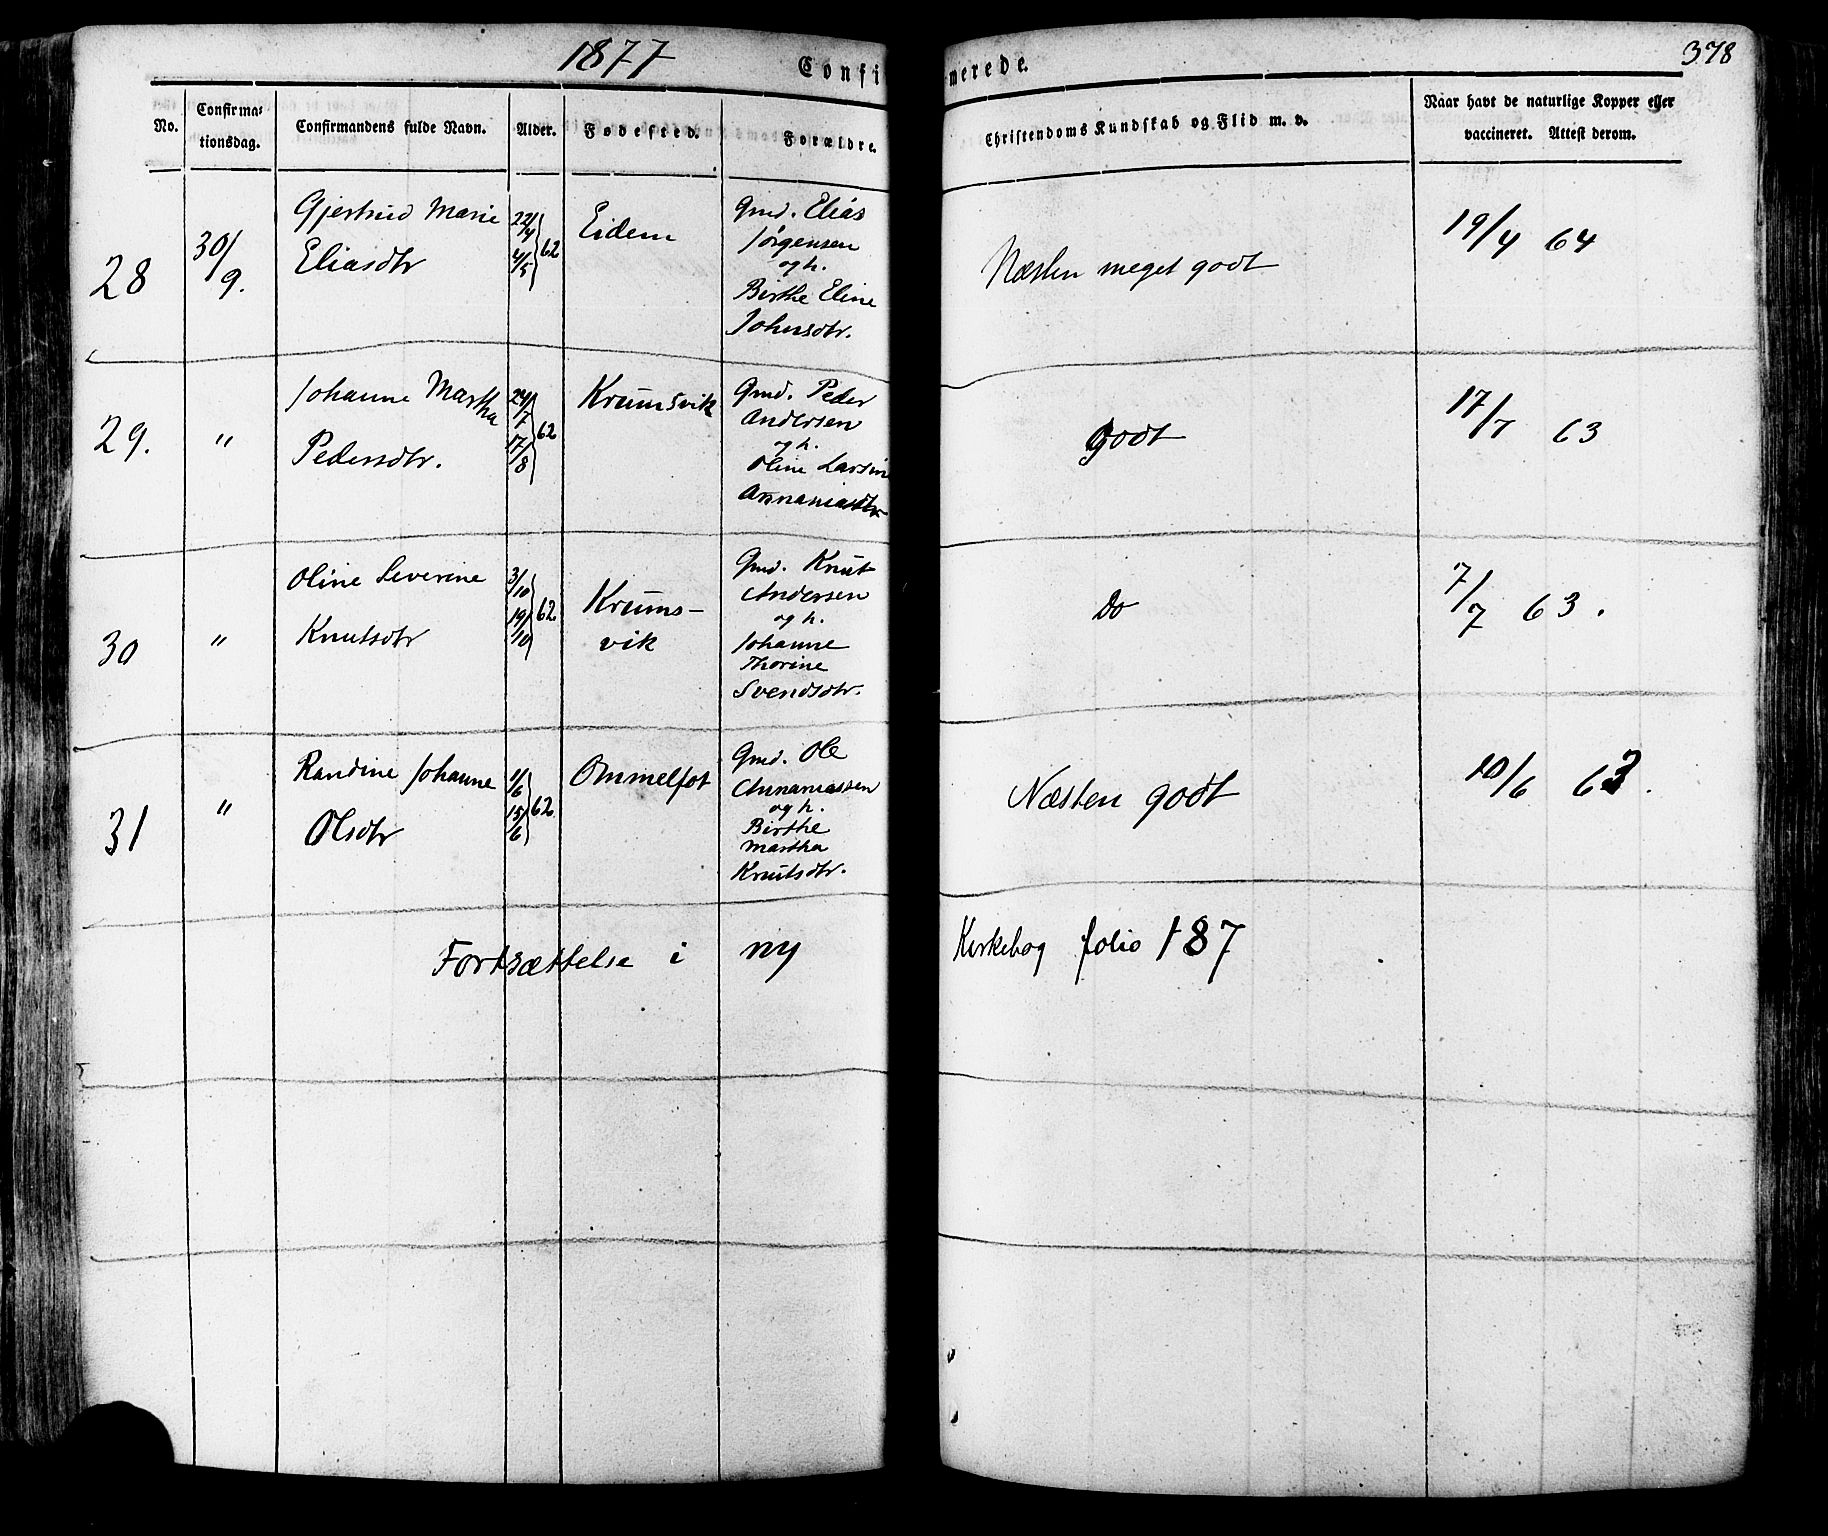 1877
Confi merede.
378
No.
Confirma-
tionsdag.
Confirmandens fulde Navn.
Alder.
Fødested.
Forældre.
Christendoms Kundskab og Flid m. v.
Naar havt de naturlige Kopper eller
vaccineret. Attest derom.
28
30/9.
Gjertrud Marie
Eliasdtr
22/4
4/5
62
Eidem
Gmd. Elias
Jørgensen
og h.
Birthe Eline
Johnsdtr.
Næsten meget godt
19/4 64
29.
"
Johanne Martha
Pedersdtr.
24/7
17/8
62
Krumsvik
Gmd. Peder
Andersen
og h.
Oline Larsine
Annaniasdtr
godt
17/7 63
30
"
Oline Severine
Knutsdtr
3/10
19/10
62
Krums-
vik
Gmd. Knut
Andersen
og h.
Johanne
Thorine
Svendsdtr.
Do
7/7 63.
31
"
Randine Johanne
Olsdtr
1/6
15/6
62
Ommelfot
Gmd. Ole
Annaniassen
og h.
Birthe
Martha
Knutsdtr.
Næsten godt
10/6 63.
Fortsættelse i ny Kirkebog folio 187